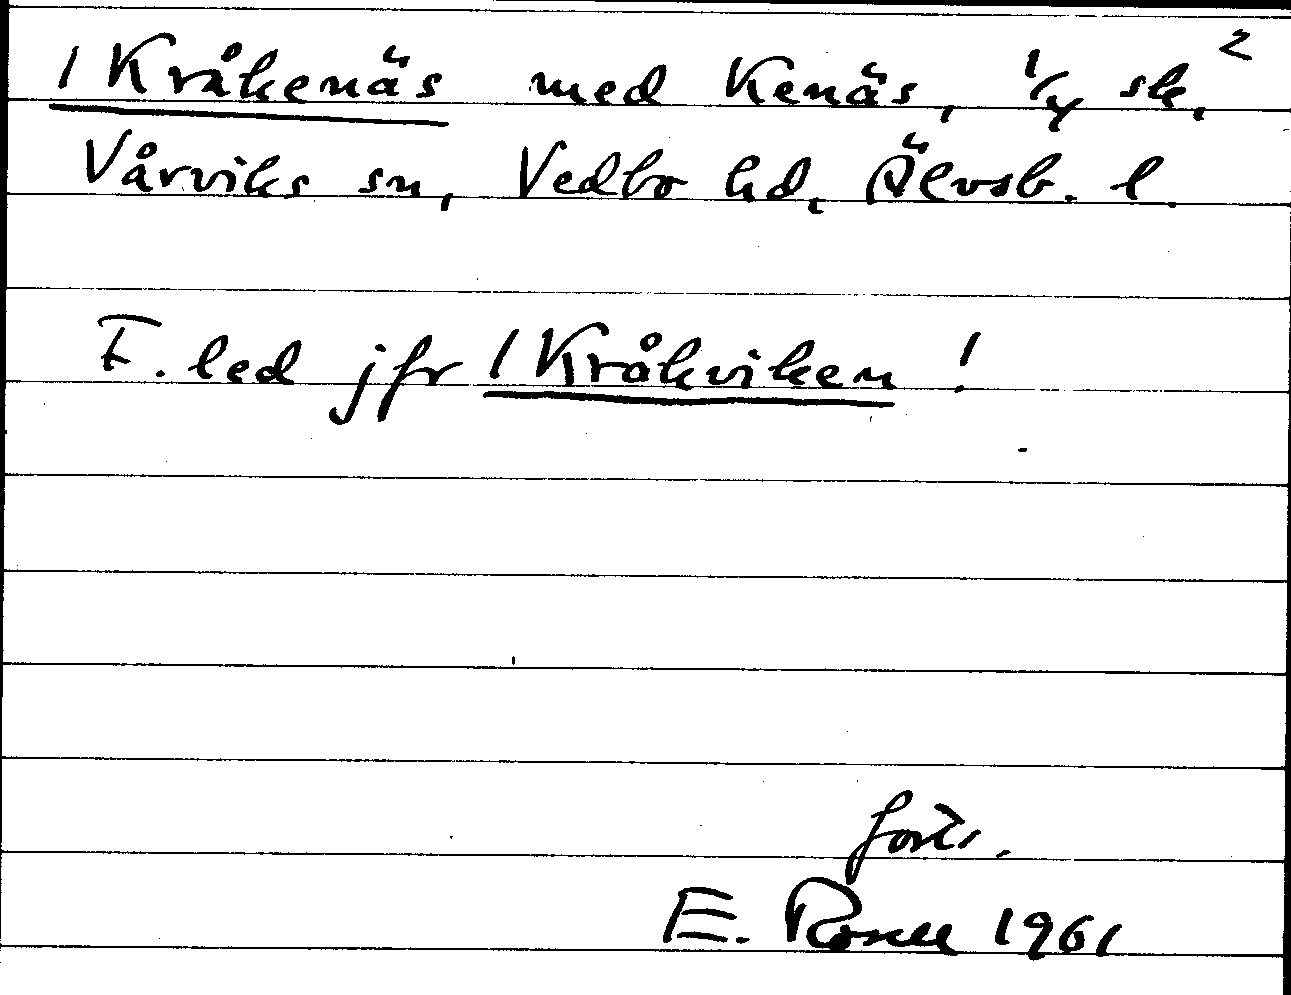 2
1 Kråkenäs med Kenäs, 1/4 sk.
Vårviks sn, Vedbo hd, Älvsb. l.
F. led jfr 1 Kråkviken !
forts.
E. Rosell 1961